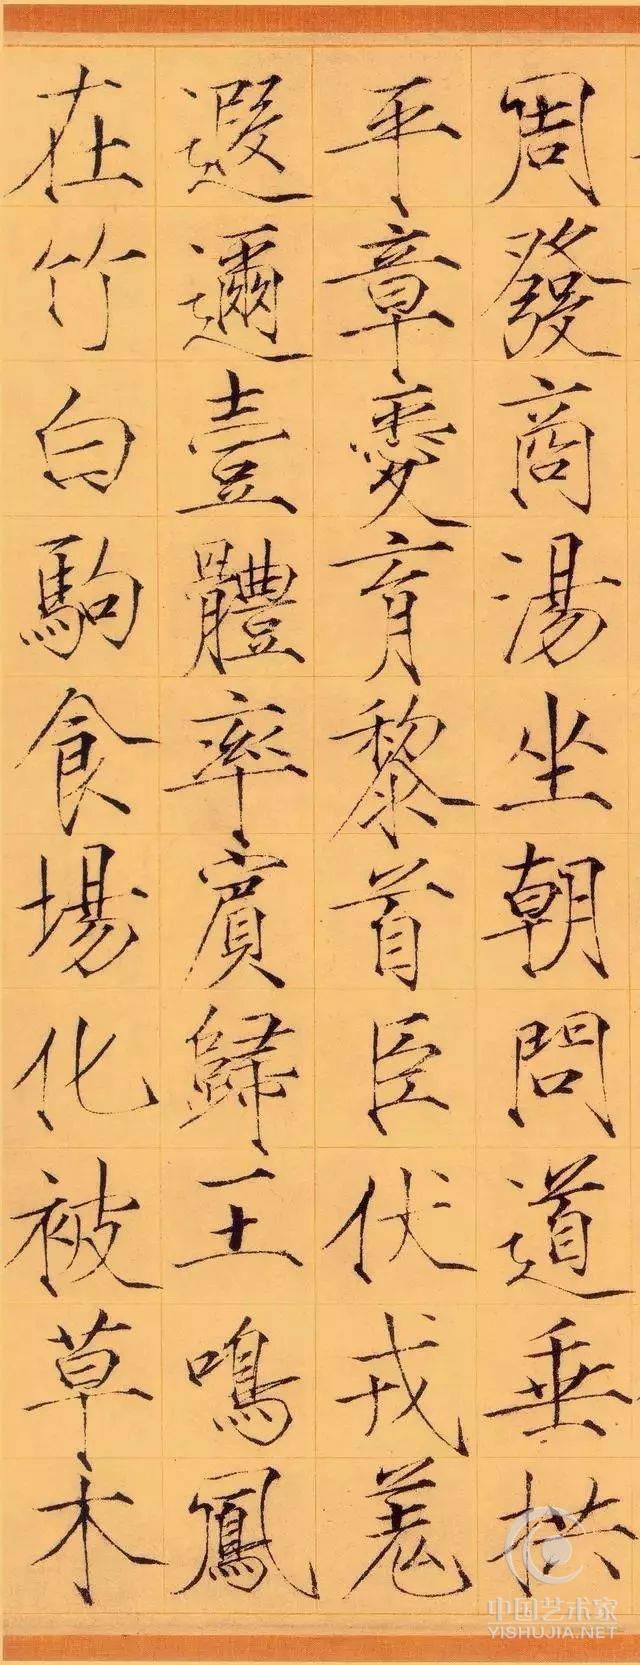 周發商湯坐朝問道垂拱
平章愛育黎首臣伏戎羌
遐邇壹體率賓歸王鳴鳳
在竹白駒食場化被草木
中国艺术家
YISHUJIA.NET